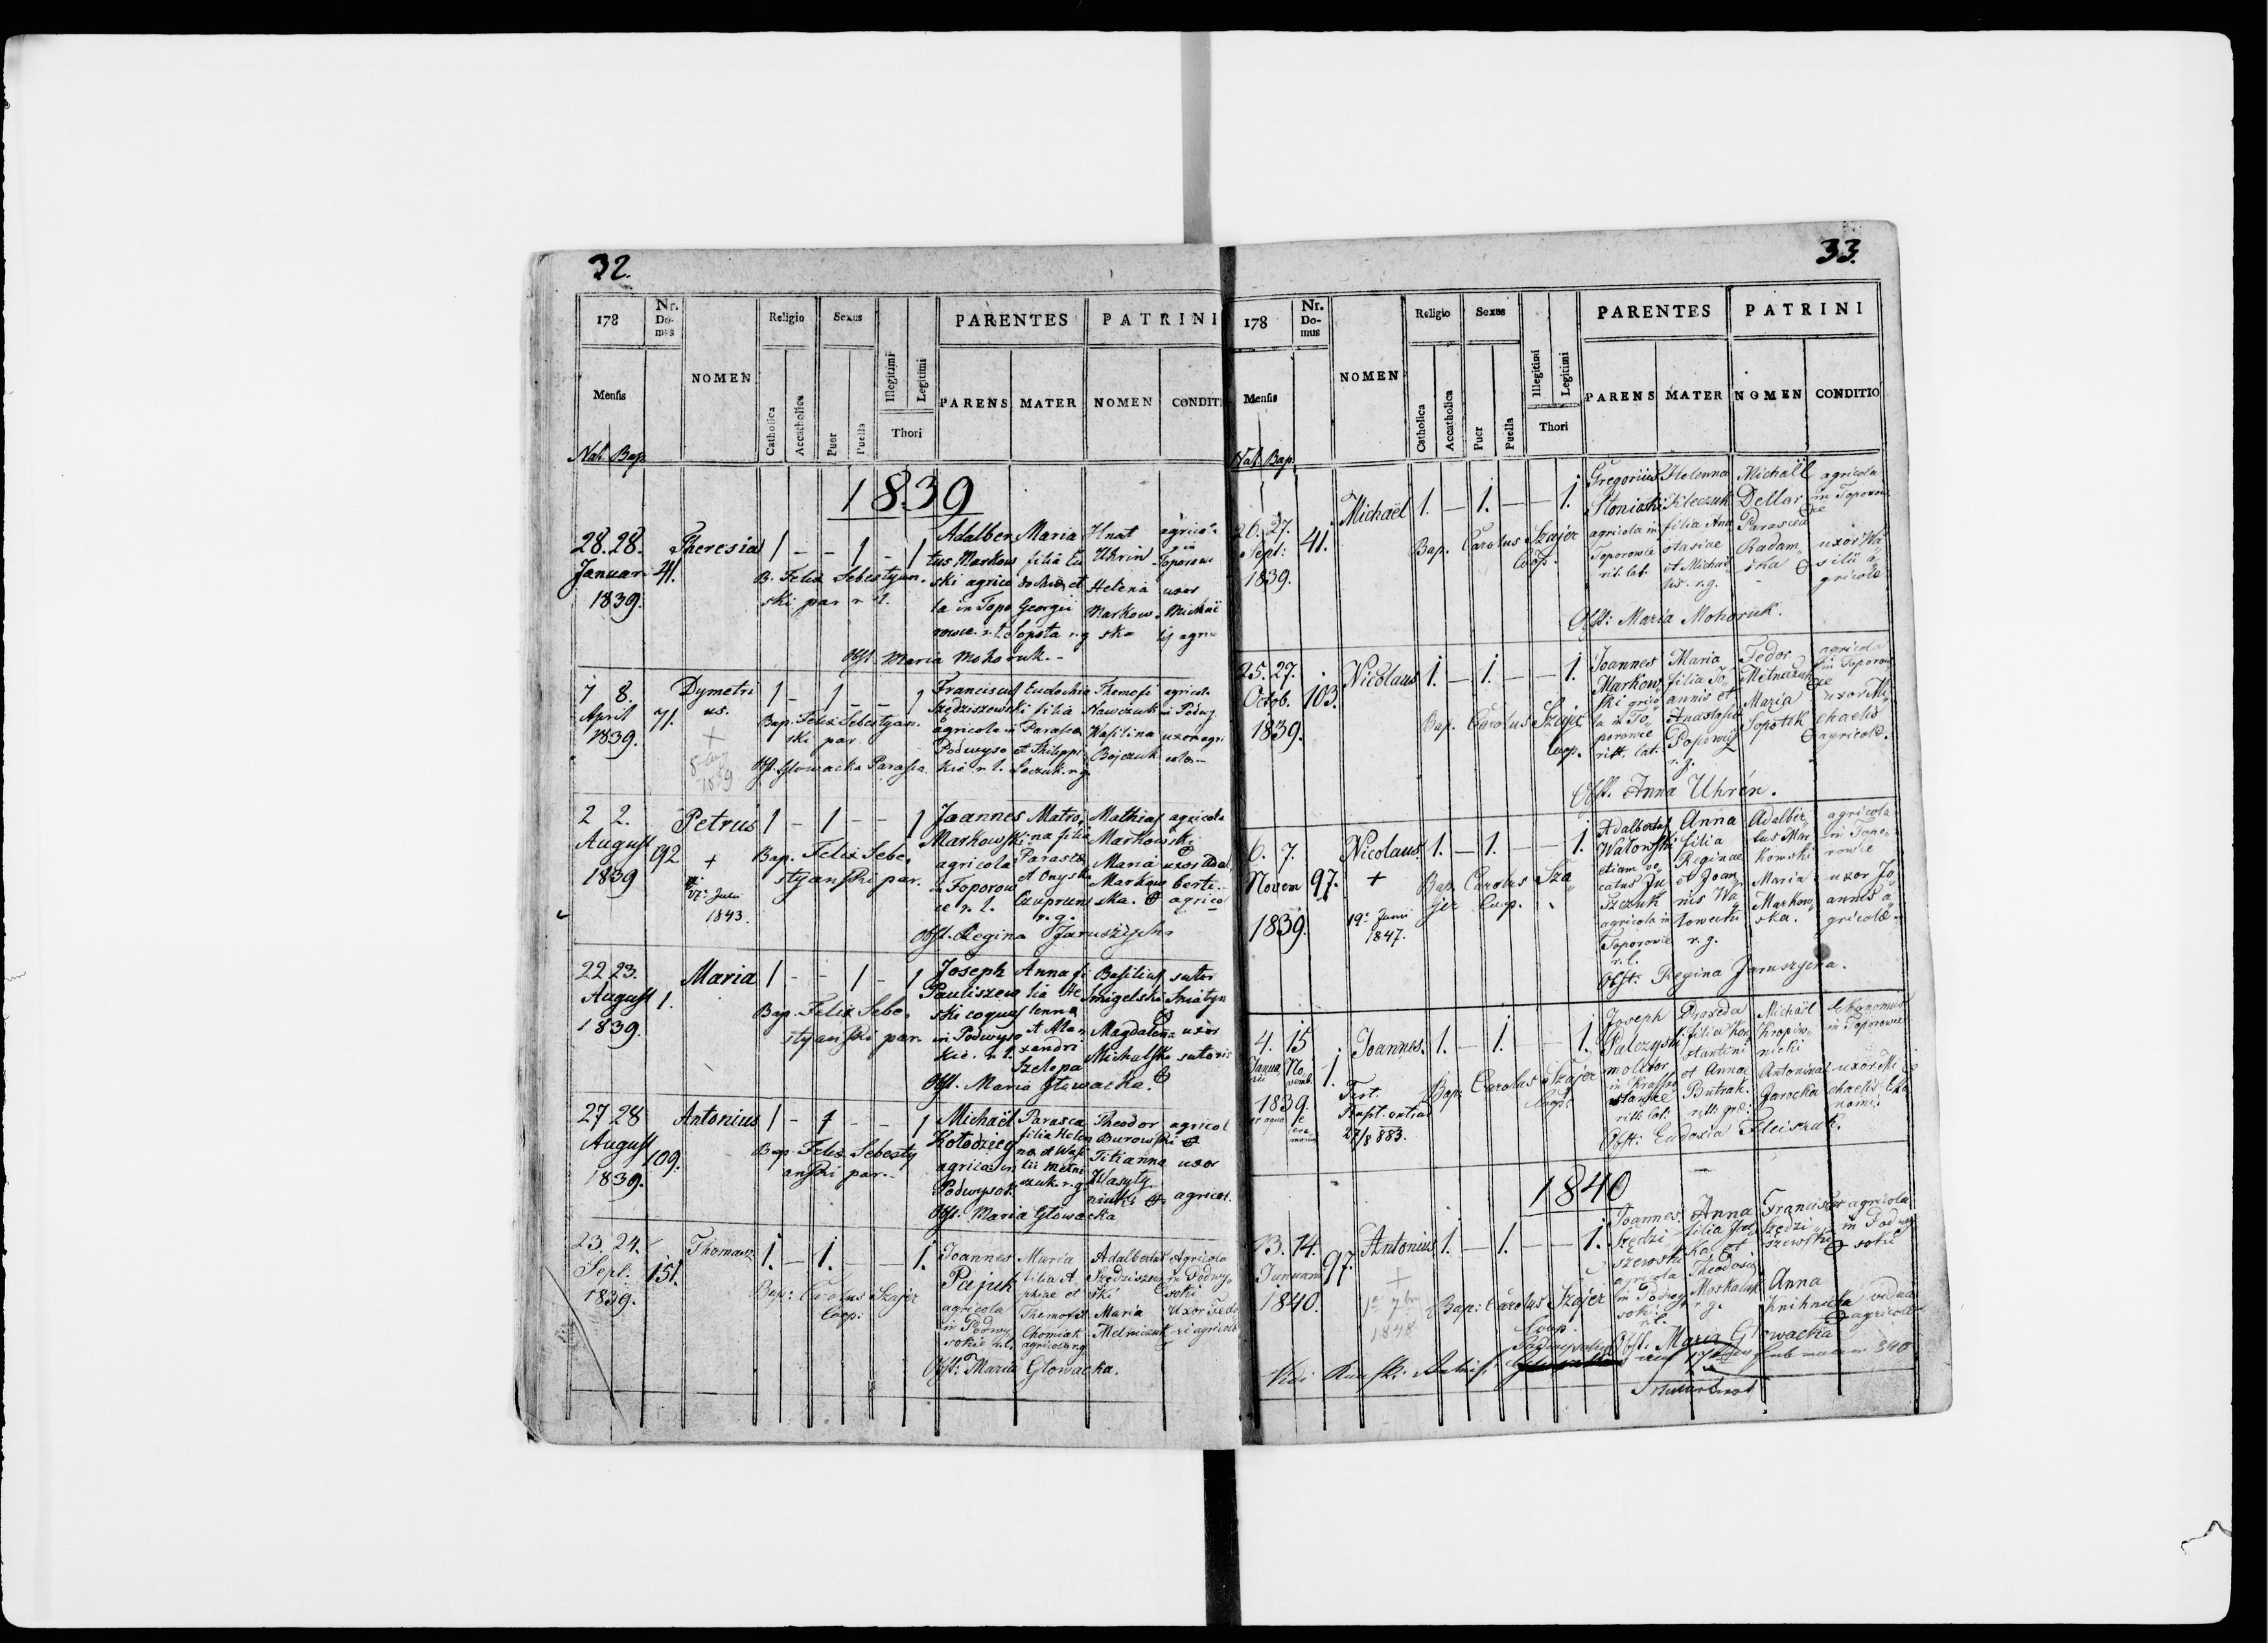 32.
178
Nr. Domus
NOMEN
Religio
Sexus
Illegitimi
Legitimi
PARENTES
PATRINI
Mensis
Catholica
Accatholica
Puer
Puella
Thori
PARENS
MATER
NOMEN
CONDITI
Nat. Bap.
1839
28. 28. Januar 1839.
41.
Theresia
1 - - 1 - 1
B. Felix Sebestyan-
ski par r. l.
Adalber
tus Markow
ski agrico
la in Topo
rowce. r. l.
Maria
filia Eu
dochiæ et
Georgii
Sopota r. g
Hnat
Uhrin
Helena
Markow
ska
agricola
in
Toporowc
uxor
Michaë
lis agric
Obst. Maria Mohoruk.-
7 8.
April
1839.
71.
Dymetri
us.
+
1 - 1 - - 1
Bap. Felix Sebestyan.
ski par.
Obst. Głowacka Parasca
Franciscus
Szędziszewski
agricola in
Podwyso
kie r. l.
Eudochia
filia
Parasca
et Philippi
r. g.
Thomofi
Nawczuk
Wasilina
Bojczuk
agricola
in Podwy
uxor agri
colæ-
2 2.
August
1839
92
Petrus
+
Juli
1843.
1 - 1 - - 1
Bap. Felix Sebe,
styanski par.
Joannes
Markowski
agricola
in Toporow
ce r. l.
Matro,
na filia
Parascæ
et Onyska
Czuprun
r. g.
Mathias
Markowski
Maria
Markow
ska.
agricola
uxor Adal
berti-
agricol
Obst. Regina Jaruszyska
22 23.
August
1839.
1.
Maria
1 - - 1 - 1
Bap. Felix Sebe,
styanski par.
Joseph
Pauliszew
ski coquus
in Podwyso
kie. r. l.
Anna fi
lia He
lenna
et Ale
xandri
Szelepa
Basilius
Smigelski
Magdalena
Michalska
sutor
Sniatyn
uxor
sutoris
Obst. Maria Głowacka.
27 28
August
1839.
109.
Antonius
1 - 1 - - 1
Bap. Felix Sebesty
anski par.-
Michaël
Kołodzieg
agricola in
Podwysok.
Parasca
filia Helen
næ et Wasi
lii Melni
czuk. r. g
Theodor
Burowski
Titianna
Wasyty
niuk
agricol
uxor
agricol.
Obst. Maria Głowacka
23. 24.
Sept.
1839.
151.
Thomasz
1. - 1. - - 1.
Bap: Carolus Szajer
Coop:
Joannes
Pajuk
agricola
in Podwy
sokie r. l.
Maria
filia A,
phiae et
Themofei
Chomiak
agricolæ r. g
Adalbertus
Szędziszew
ski
Maria
Melniczuk
Agricola
in Podwy,
soki
Uxor Fedo
ri agricolæ
Obst: Maria Głowacka.
33.
178
Nr. Domus
NOMEN
Religio
Sexus
Illegitimi
Legitimi
PARENTES
PATRINI
Mensis
Catholica
Accatholica
Puer
Puella
Thori
PARENS
MATER
NOMEN
CONDITIO
Nat. Bap.
26. 27.
Sept:
1839.
41.
Michaël
1. - 1. - - 1.
Bap. Carolus Szajer
Coop.
Gregorius
Słoniski
agricola in
Toporowce
rit. lat.
Helenna
Kleczuk
filia Ana
stasiae
et Michae,
lis. r. g.
Michaël
Dellar
Parasca
Radam,
ska
agricola
in Toporow
ce
uxor Wa,
silii a,
gricolæ
Obst: Maria Mohoruk.
25. 27.
Octob.
1839.
103.
Nicolaus
1. - 1. - - 1.
Bap. Carolus Szajer
Coop.
Joannes
Markow,
ski agrico
la in To,
porowce
ritt. lat.
Maria
filia Jo,
annis et
Anastasiæ
Popowicz
r. g.
Fedor
Melniczuk
Maria
Sopotik
agricola
in Toporow,
ce
uxor Mi,
chaelis
agricolæ.
Obst. Anna Uhrén.
6. 7.
Novem
1839.
97.
Nicolaus
+
19a Junii
1847.
1. - 1. - - 1.
Bap. Carolus Sza,
jer Coop.
Adalbertus
Watowski
etiam vo,
catus Ju
szczuk
agricola in
Toporowce
r. l.
Anna
filia
Reginae
et Joan,
nis Wa,
towchi
r. g.
Adalber,
tus Mar
kowski
Maria
Markow,
ska.
agricola
in Topo,
rowce
uxor Jo,
annis a,
gricolæ.
Obst: Regina Jaruszycka.
4. 15
Janua,
rii
No
vemb.
1839.
1.
Joannes.
Test.
Bapt. ontia
27/8 883.
1. - 1. - 1.
Bap. Carolus Szajer
Coop.
Joseph
Palczyski
molitor
in Krasno
stawce
ritt. lat.
Praxeda
filia Kon
stantini
et Annæ
Butrak.
ritt. græ:
Michaël
Kropiw,
nicki
Antonina
Jarocka
Ekonomus
in Toporowce
uxor Mi
chaelis Eko
nomi.
Obst: Eudoxia Fleiszuk.
1840
13. 14.
Januarii
1840.
97.
Antonius
+
1a 7br
1848
1. - 1. - - 1.
Bap: Carolus Szajer
Coop.
Joannes
Szędzi
szewski
agricola
in Podwy
sokie
r. l.
Anna
filia
et
Theodosii
Moskaluk
r. g.
Franciscus
Szędzi,
szewski
Anna
Knihnicka
agricola
in Podwy
soki
vidua
agricolæ
Obst. Maria Głowacka
Vidi